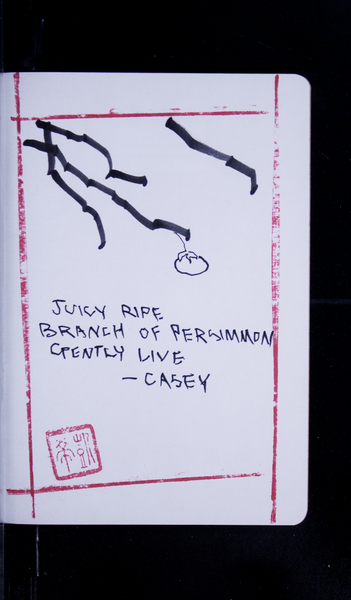 JUICY RIPE
BRANCH OF PERSIMMON
GENTLY LIVE
- CASEY